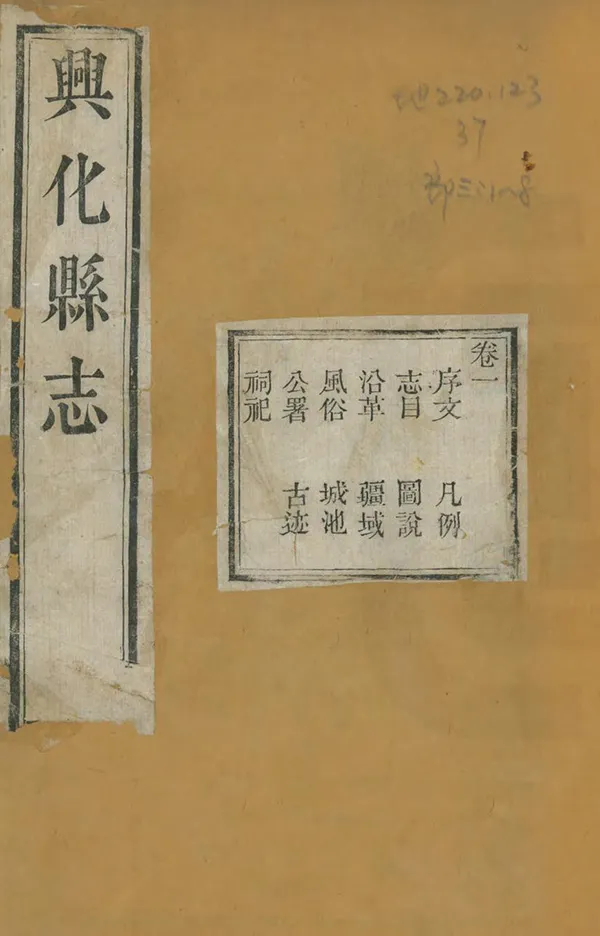 興化縣志
卷一
序文 凡例
志目 圖說
沿革 疆域
風俗 城池
公署 古迹
祠祀
地220.123
37